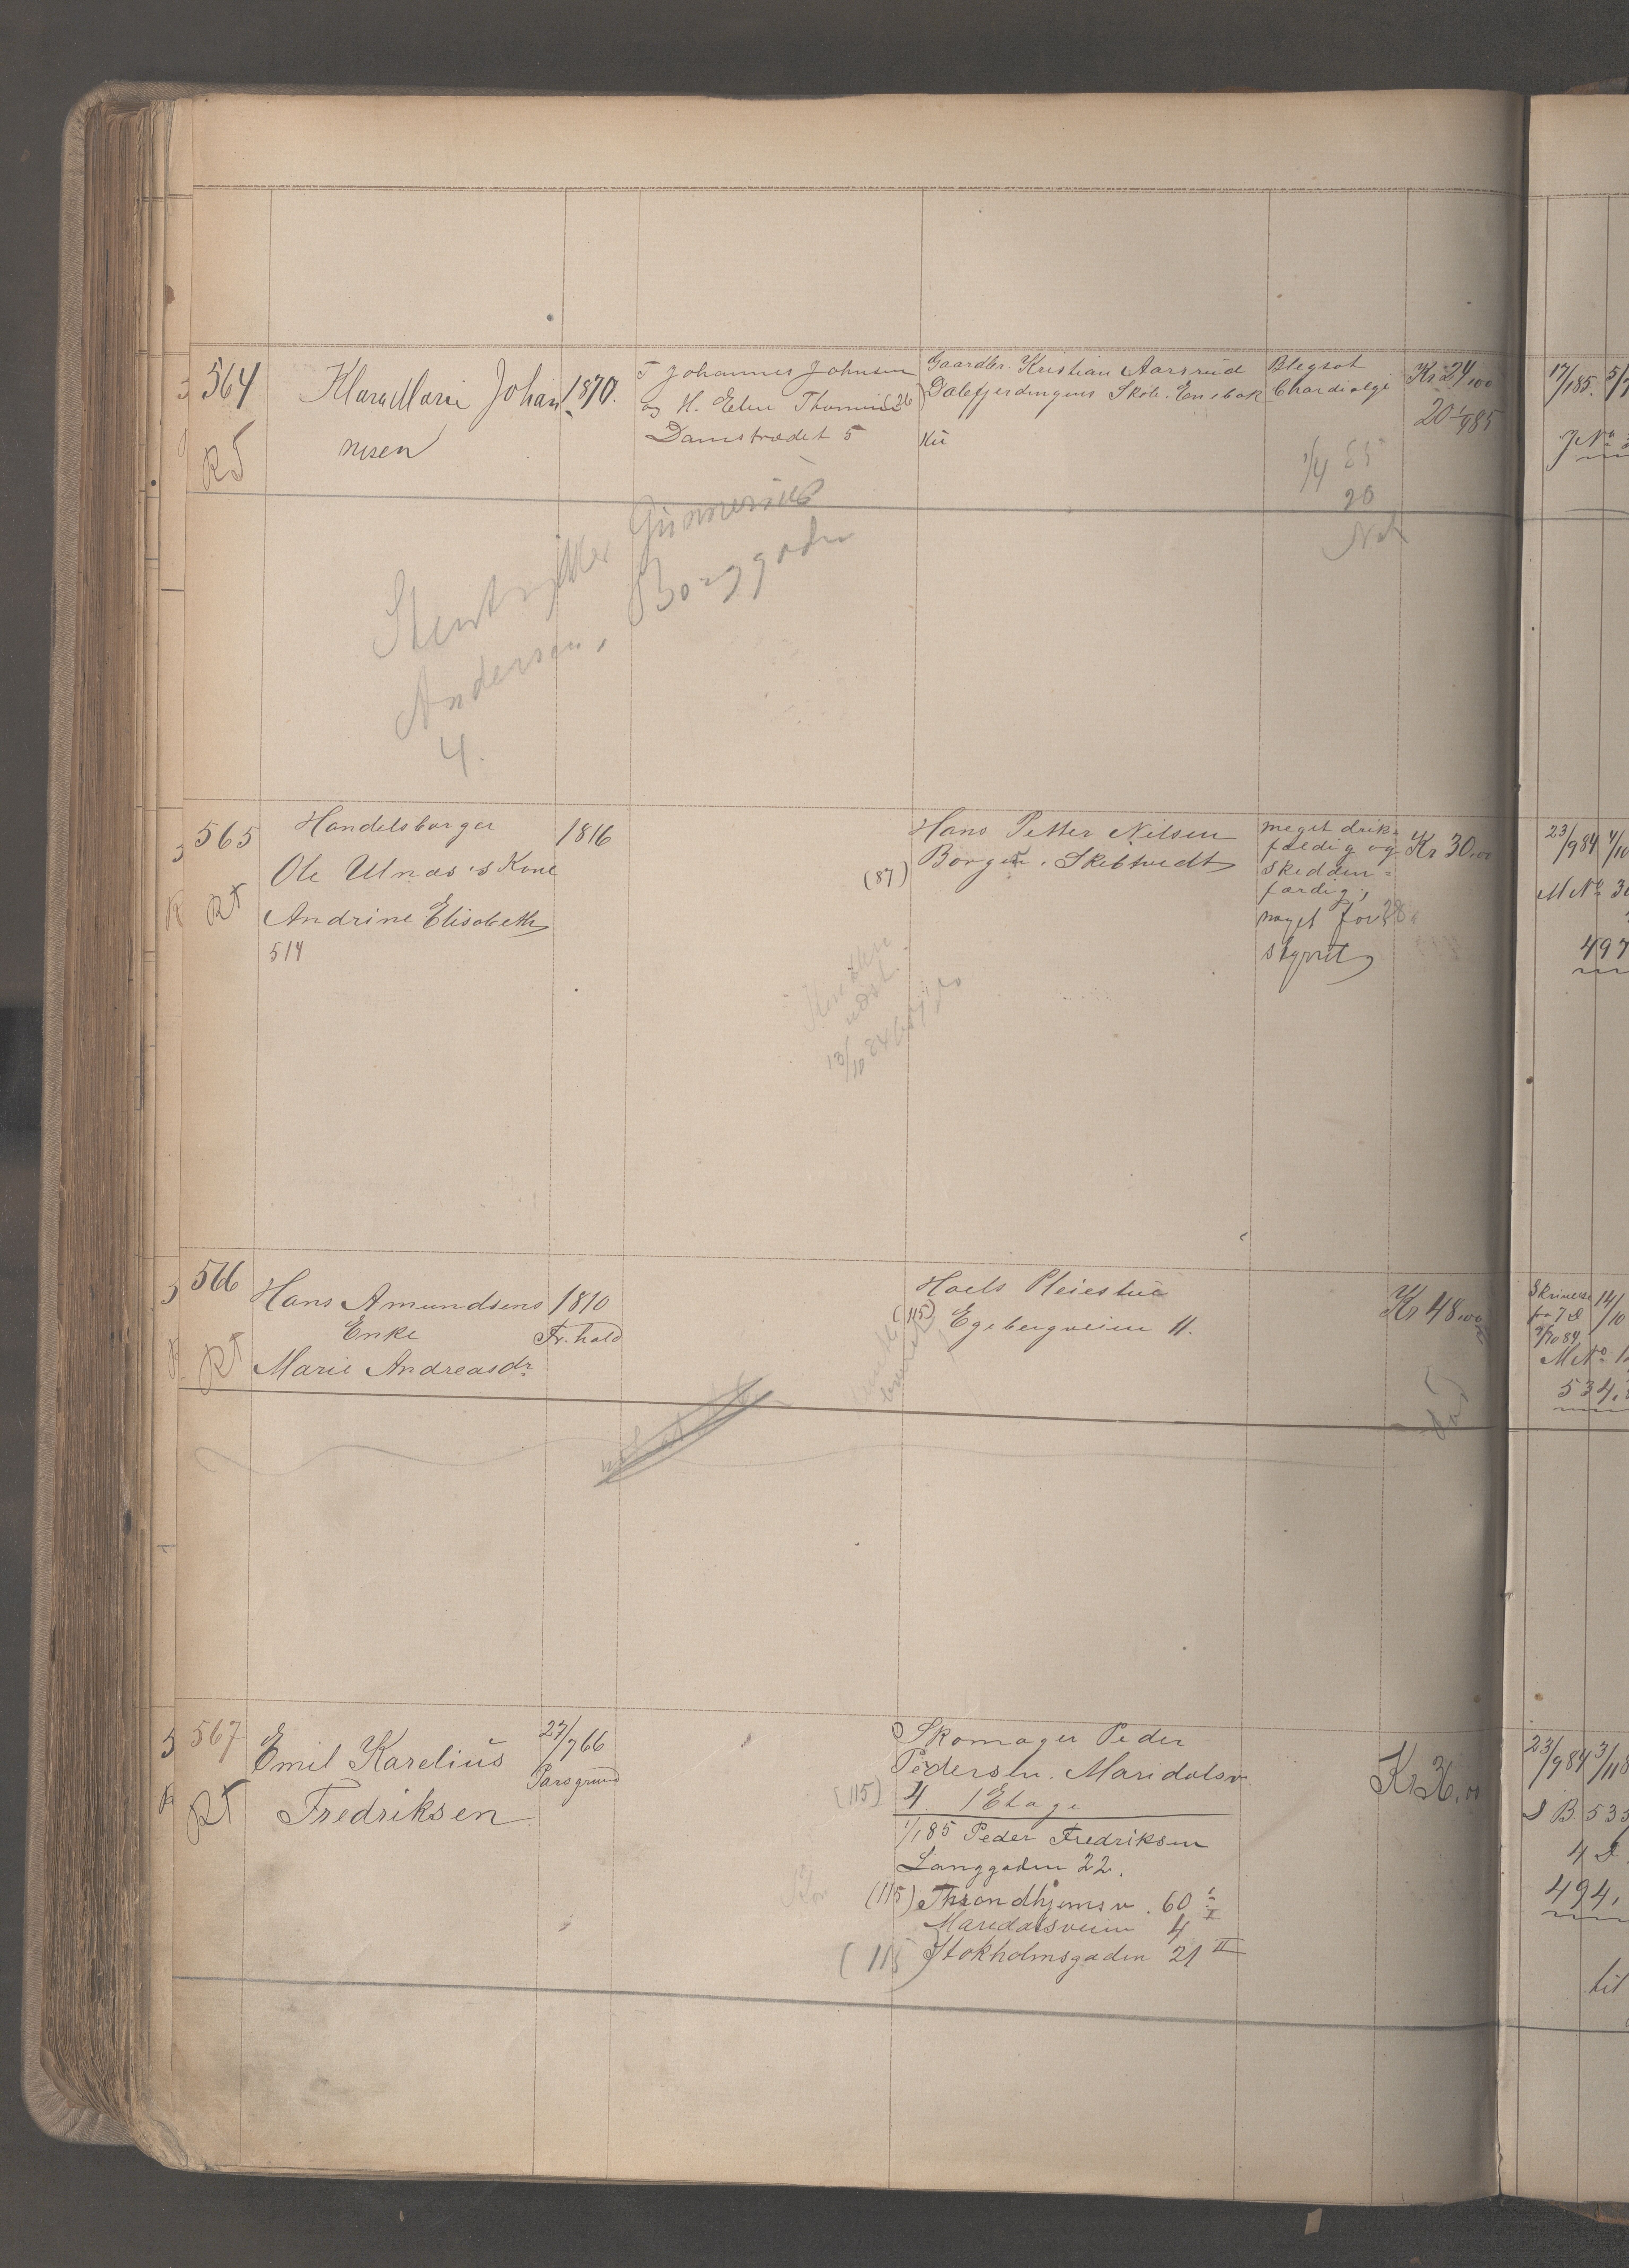 564
Klara Marie Johan
nesen
1870.
Johannes Johnsen
og H. Eline Thomine
Damstrædet 5
Gaardbr. Kristian Aarsrud
(26) Dalefjerdingens Skole. Enebak
Blegsot
Chardialgi
Kr 24,00
20 1/4 85
17/1 85.
RT
1/4 85
20
Stentrykker Gunnerius
Andersen, Borggaden
4.
565
RT
Handelsborger
Ole Ulnæs's Kone
Andrine Elisabeth
514
1816
Hans Petter Nilsen
(87) Borgen. Skibtvedt
meget drik-
fældig og
skidden-
færdig,
noget for-
styrret
Kr 30.00
23/9 84
M No 3
497
13/10 84
566
RT
Hans Amundsens
Enke
Marie Andreasdr.
1810
Fr.hald
Hoels Pleiestue
(115) Egebergveien 11.
Kr 48.00
Skrivelse
fra
9/10 84
14/10
M No
534.
567
RT
Emil Karelius
Fredriksen
27/7 66
Porsgrund
Skomager Peder
Pedersen. Maridalsv.
(115) 4. 1 Etage
1/1 85 Peder Fredriksen
Langgaden 22.
(115) Throndhjemsv. 60
Maridalsveien 4
(115) Stokholmsgaden 21 II
Kr 36.00
23/9 84
B 533
494.
til